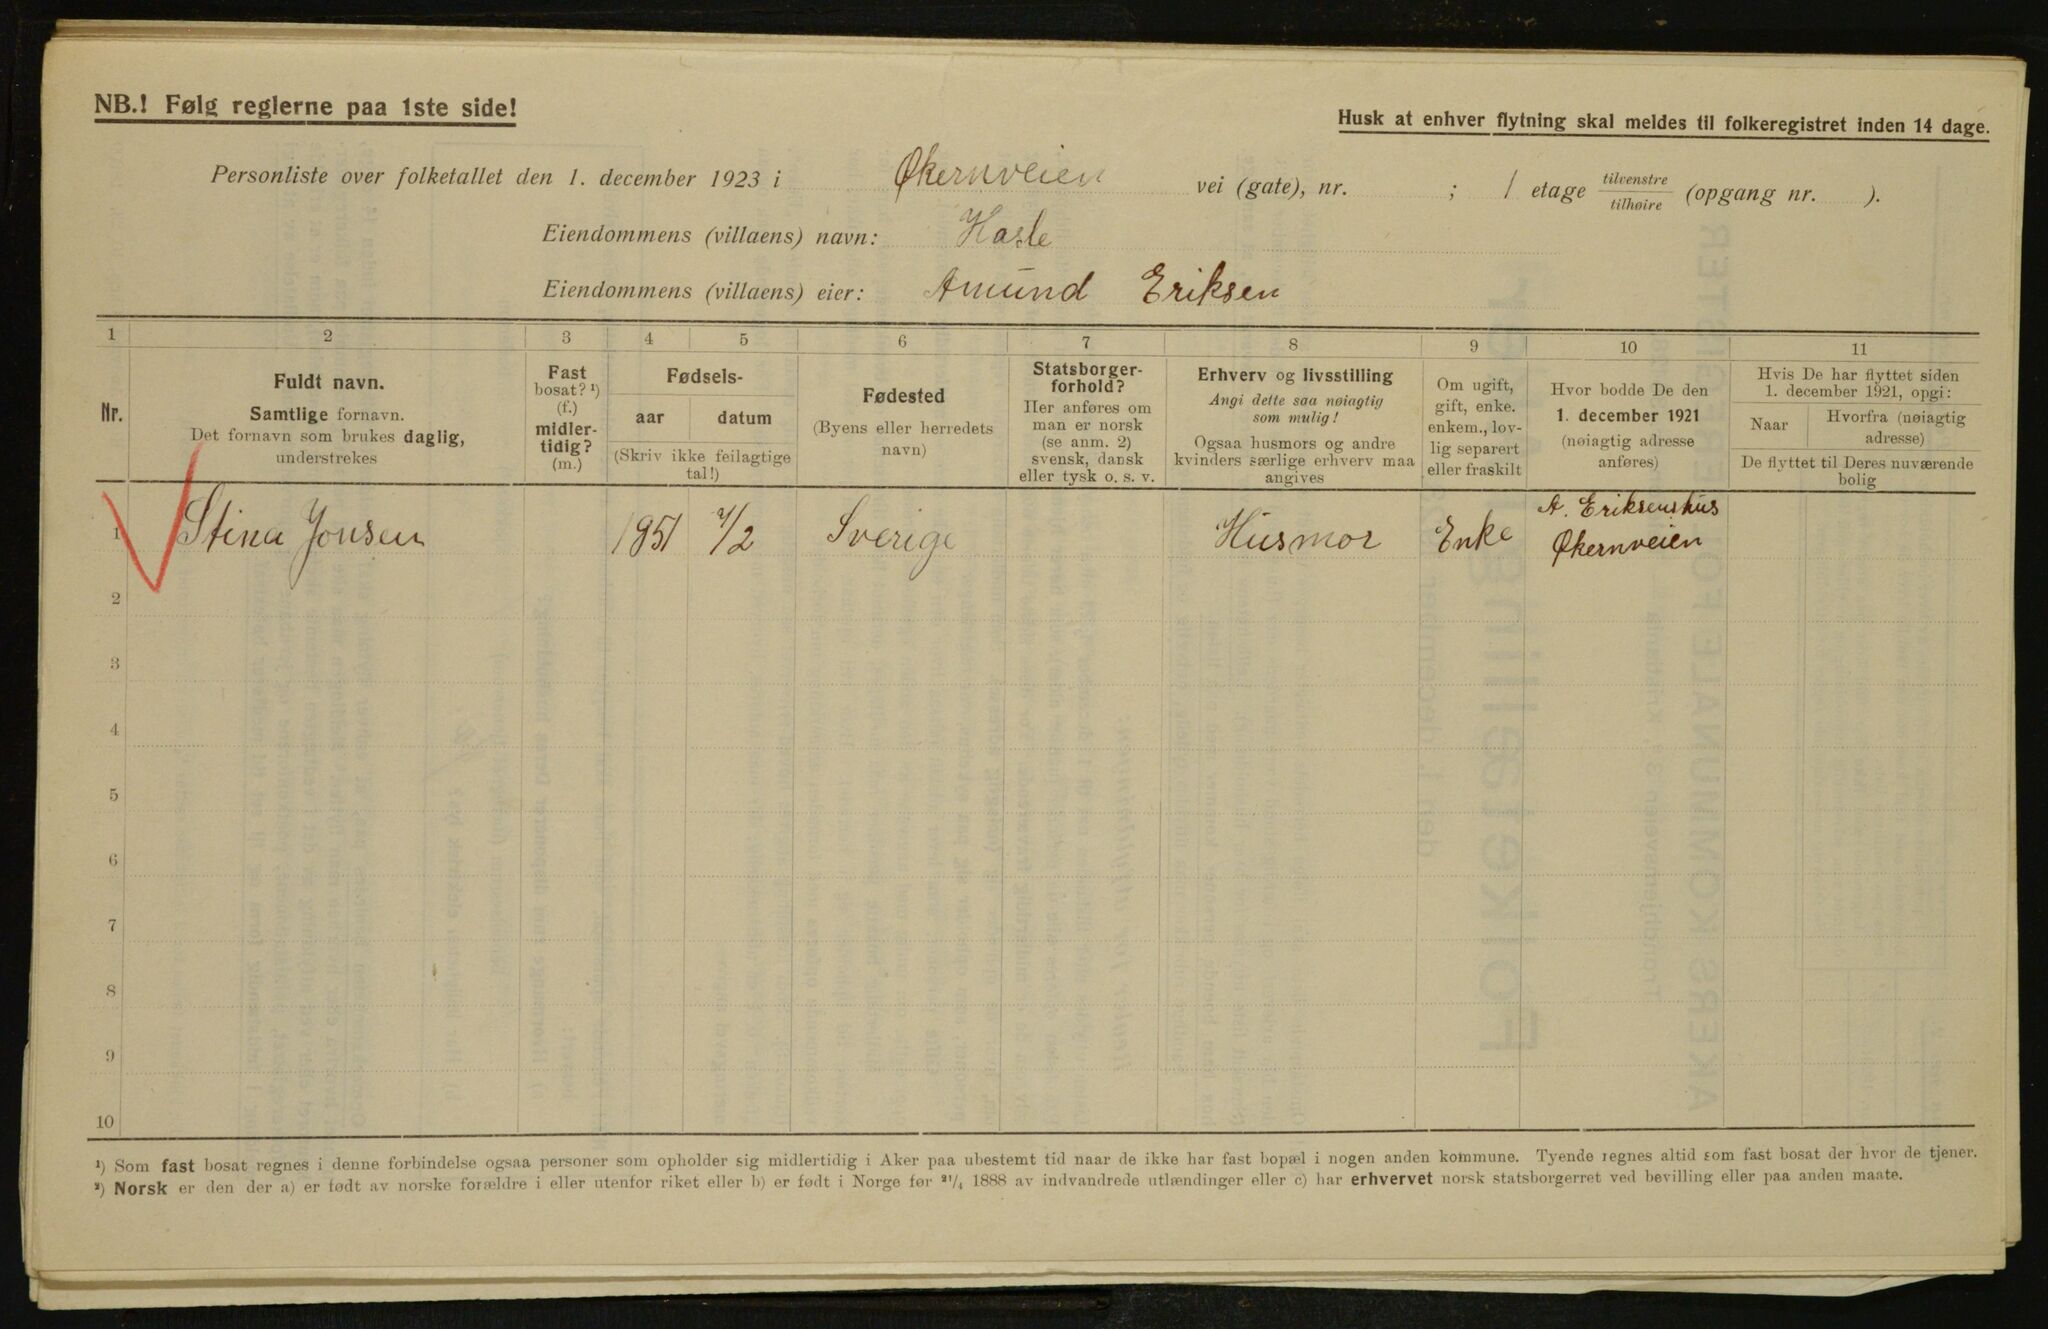 NB.! Følg reglerne paa 1ste side!
Husk at enhver flytning skal meldes til folkeregistret inden 14 dage.
Personliste over folketallet den 1. december 1923 i Økernveien vei (gate), nr. ; 1 etage tilvenstre tilhøire (opgang nr. ).
Eiendommens (villaens) navn: Hasle
Eiendommens (villaens) eier: Amund Eriksen
1 2 3 4 5 6 7 8 9 10 11
Nr.
Fuldt navn.
Samtlige fornavn.
Det fornavn som brukes daglig,
understrekes
Fast
bosat? ¹)
(f.)
midler-
tidig?
(m.)
Fødsels-
aar datum
(Skriv ikke feilagtige
tal!)
Fødested
(Byens eller herredets
navn)
Statsborger-
forhold?
Her anføres om
man er norsk
(se anm. 2)
svensk, dansk
eller tysk o. s. v.
Erhverv og livsstilling
Angi dette saa nøiagtig
som mulig!
Ogsaa husmors og andre
kvinders særlige erhverv maa
angives
Om ugift,
gift, enke.
enkem., lov-
lig separert
eller fraskilt
Hvor bodde De den
1. december 1921
(nøiagtig adresse
anføres)
Hvis De har flyttet siden
1. december 1921, opgi:
Naar
Hvorfra (nøiagtig
adresse)
De flyttet til Deres nuværende
bolig
1 Stina Jonsen 1851 /2 Sverige Husmor Enke A. Eriksenshus
Økernveien
2
3
4
5
6
7
8
9
10
¹) Som fast bosat regnes i denne forbindelse ogsaa personer som opholder sig midlertidig i Aker paa ubestemt tid naar de ikke har fast bopæl i nogen anden kommune. Tyende regnes altid som fast bosat der hvor de tjener.
²) Norsk er den der a) er født av norske forældre i eller utenfor riket eller b) er født i Norge før ²¹/₄ 1888 av indvandrede utlændinger eller c) har erhvervet norsk statsborgerret ved bevilling eller paa anden maate.